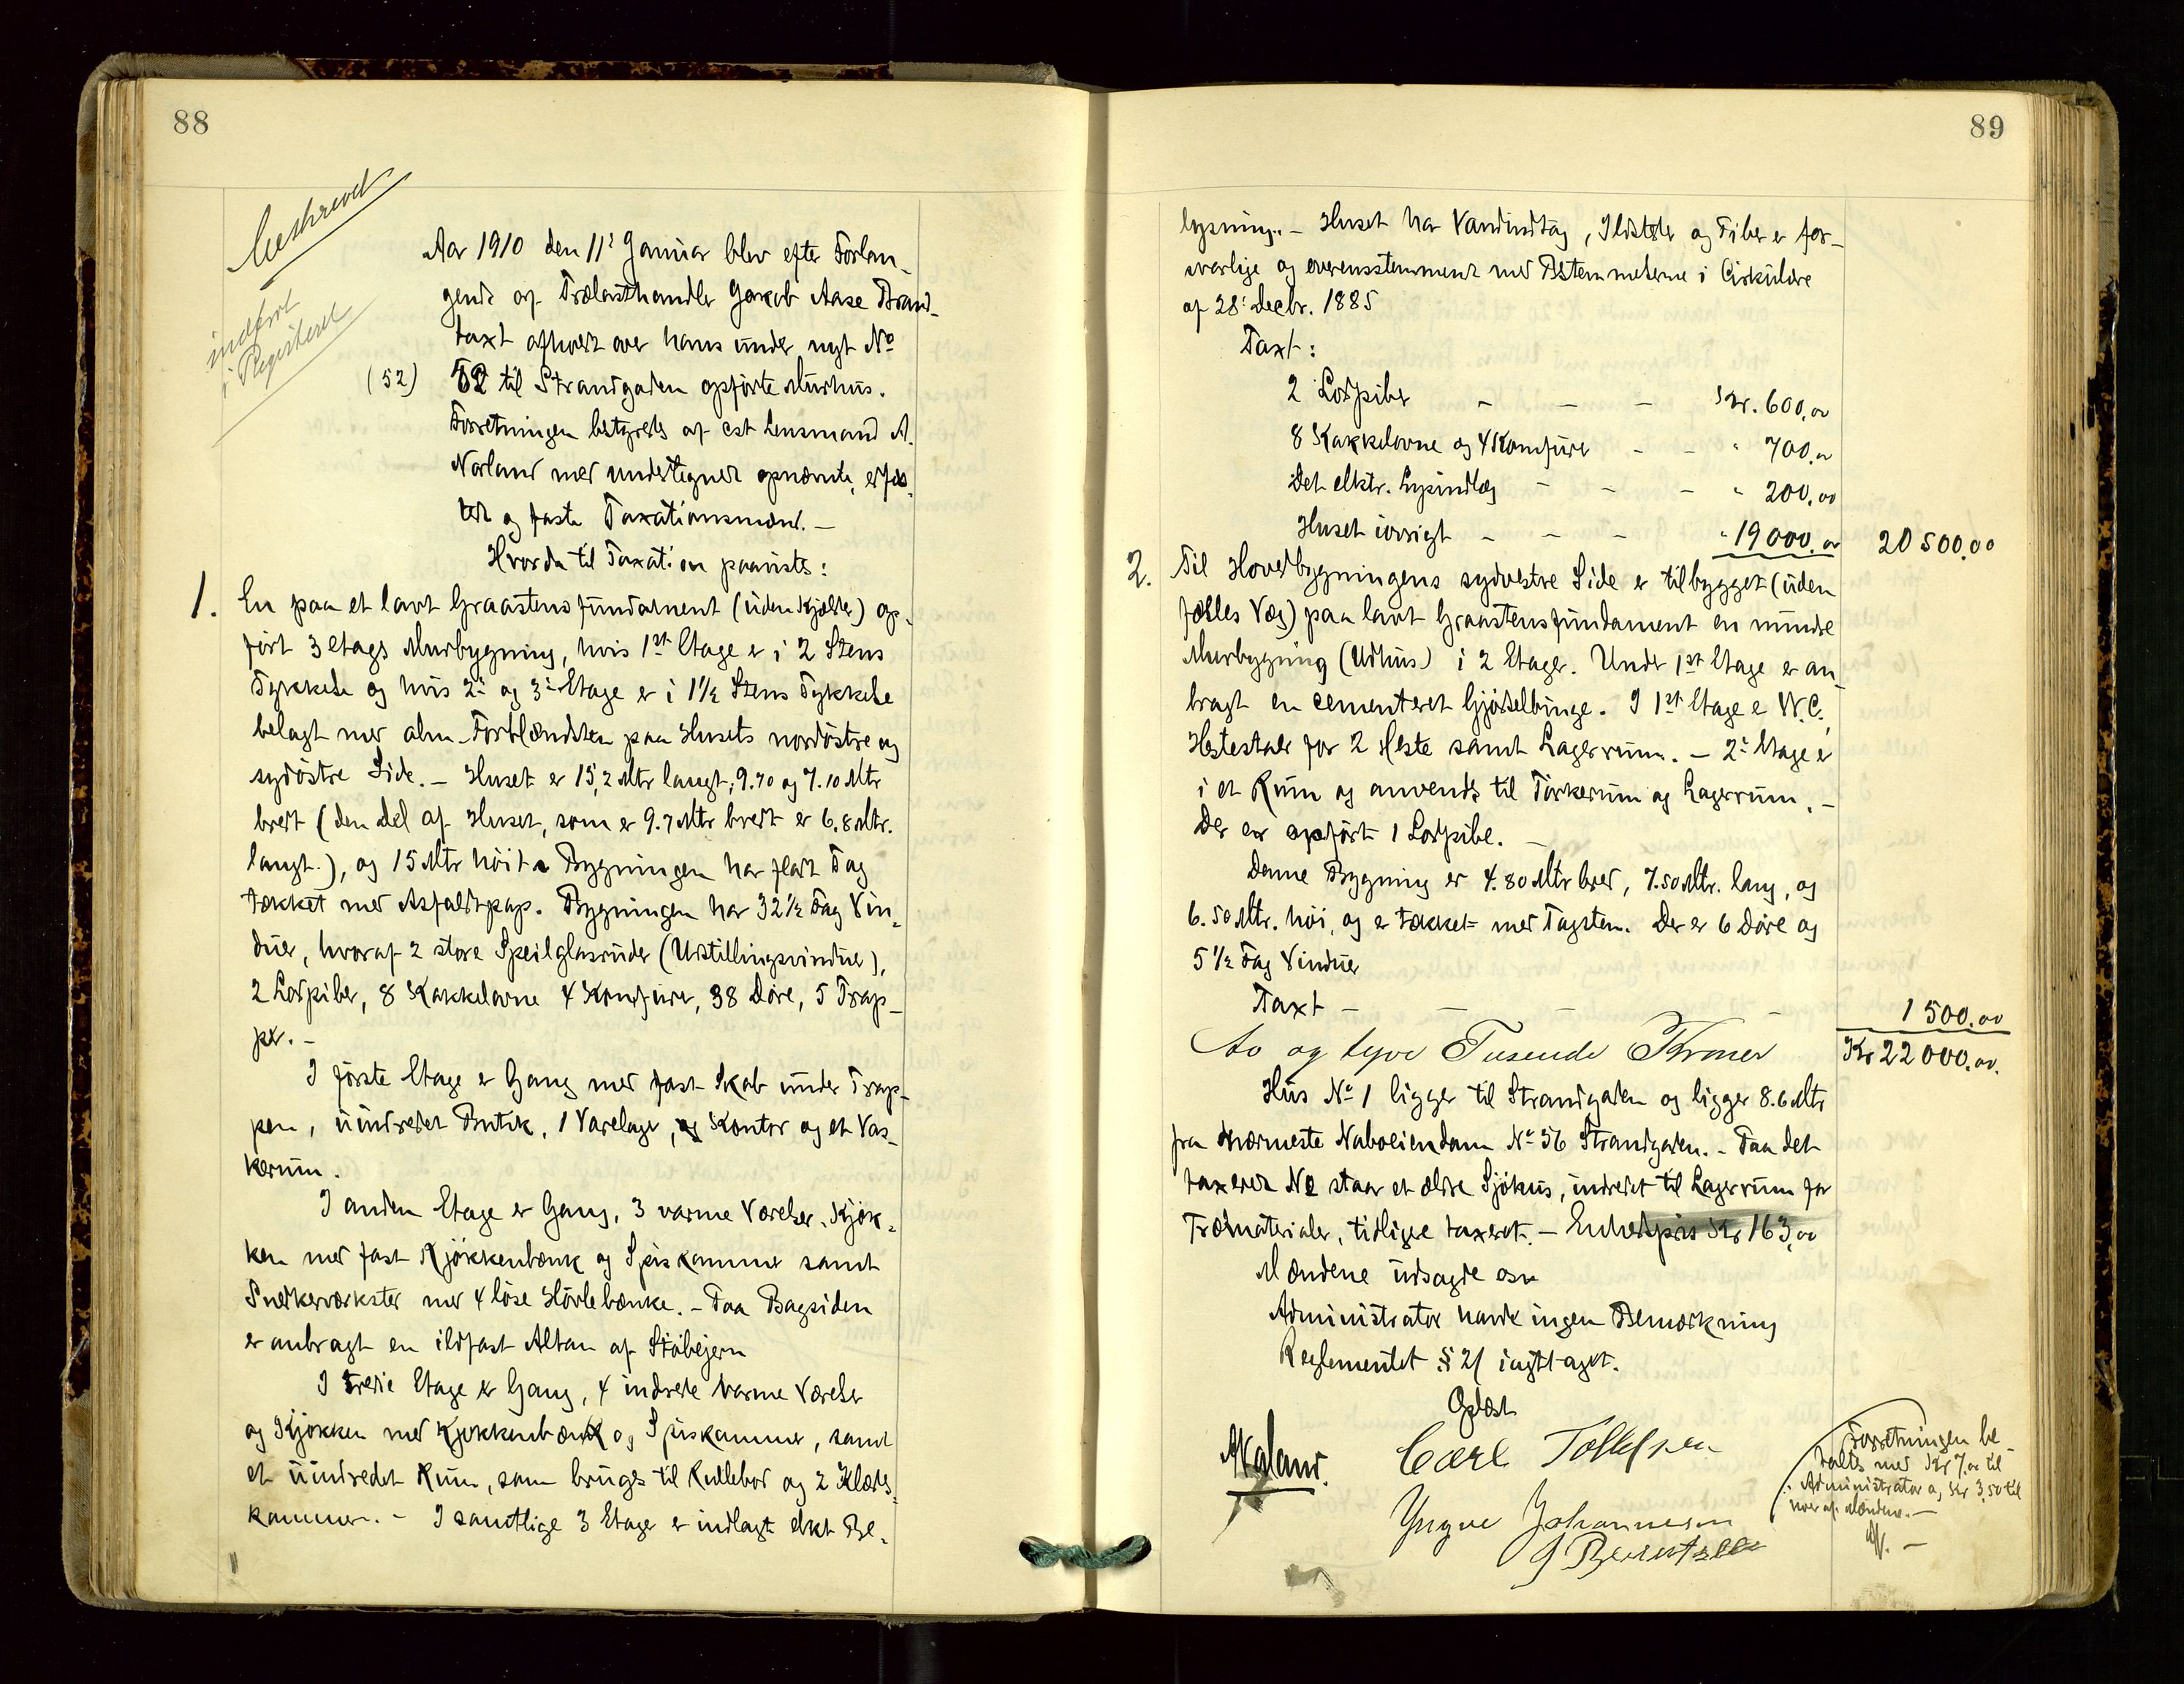 88
Udskrevet
indført
i Registeret
Aar 1910 den 11' Januar blev efter Forlan-
gende af Trælasthandler Jakob Aase Brand-
taxt afholdt over hans under nyt No
(52) 52 til Strandgaden opførte Murhus.
Forretningen bestyredes af cst Lensmand A.
Norland med undertegnede opnævnte, edfæs-
tede og faste Taxationsmænd. -
Hvorda til Taxation paavistes:
1. En paa et lavt Graastensfundament (uden Kjælder) op-
ført 3 Etages Murbygning, hvis 1st Etage er i 2 Stens
Tykkelse og hvis 2' og 3' Etage er i 1 1/2 Stens Tykkelse
belagt med alm. Forblændsten paa Husets nordøstre og
sydøstre Side. - Huset er 15,2 Mtr langt, 9.70 og 7.10 Mtr
bredt (den Del af Huset, som er 9.7 Mtr bredt er 6.8 Mtr.
langt.), og 15 Mtr høit. Bygningen har fladt Tag
tækket med Asfaldtpap. Bygningen har 32 1/2 Fag Vin-
duer, hvoraf 2 store Speilglasruder (Udstillingsvinduer),
2 Lodpiber, 8 Kakkelovne 4 Komfurer, 38 Døre, 5 Trap-
per. -
I første Etage er Gang med fast Skab under Trap-
pen, uindredet Butik, 1 Varelager, Kontor og et Vas-
kerum.
I anden Etage er Gang, 3 varme Værelser, Kjøk-
ken med fast Kjøkkenbænk og Spiskammer samt
Snedkerværksted med 4 løse Høvlebænke. - Paa Bagsiden
er anbragt en ildfast Altan af Støbejern
I tredie Etage er Gang, 4 indrede varme Værelser
og Kjøkken med Kjøkkenbænk og Spiskammer, samt
et uindredet Rum, som bruges til Rullebod og 2 Klæds-
kammer. - I samtlige 3 Etager er indlagt elekt Be-
89
lysning. - Huset har Vandindtag, Ildsteder og Piber er for-
svarlige og overensstemmende med Bestemmelserne i Cirkulære
af 28' Decbr. 1885
Taxt:
2 Lodpiber - - - Kr. 600,00
8 Kakkelovne og 4 Komfure - - " 700,00
Det elktr. Lysindlæg - - - " 200,00
Huset iøvrigt - - - " 19000,00 20500,00
2. Til Hovedbygningens sydvestre Side er tilbygget (uden
fælles Væg) paa lavt Graastensfundament en mindre
Murbygning (Udhus) i 2 Etager. Under 1st Etage er an-
bragt en cementeret Gjødselbinge. I 1st Etage er W.C.,
Hestestald for 2 Heste samt Lagerrum. - 2' Etage er
i et Rum og anvendes til Tørkerum og Lagerrum. -
Der er opført 1 Lodpibe. -
Denne Bygning er 4.80 Mtr bred, 7.50 Mtr. lang, og
6.50 Mtr. høi, og er tækket med Tagsten. Der er 6 Døre og
5 1/2 Fag Vinduer
Taxt - - - - 1500,00
To og tyve Tusende Kroner Kr 22000,00.
Hus No 1 ligger til Strandgaden og ligger 8.6 Mtr
fra nærmeste Naboeiendom No 56 Strandgaden. - Paa det
taxerede No staar et ældre Sjøhus, indredet til Lagerrum for
Træmaterialer, tidligere taxeret. - Enhedspris Kr 163,00
Mændene udsagde osv
Administrator havde ingen Bemærkning
Reglementet § 21 iagttaget.
Oplæst
Carl Tollefsen
Yngve Johannesen
J Berentsen
Forretningen be-
taltes med Kr 7,00 til
Administrator og Kr 3,50 til
hver af Mændene. -